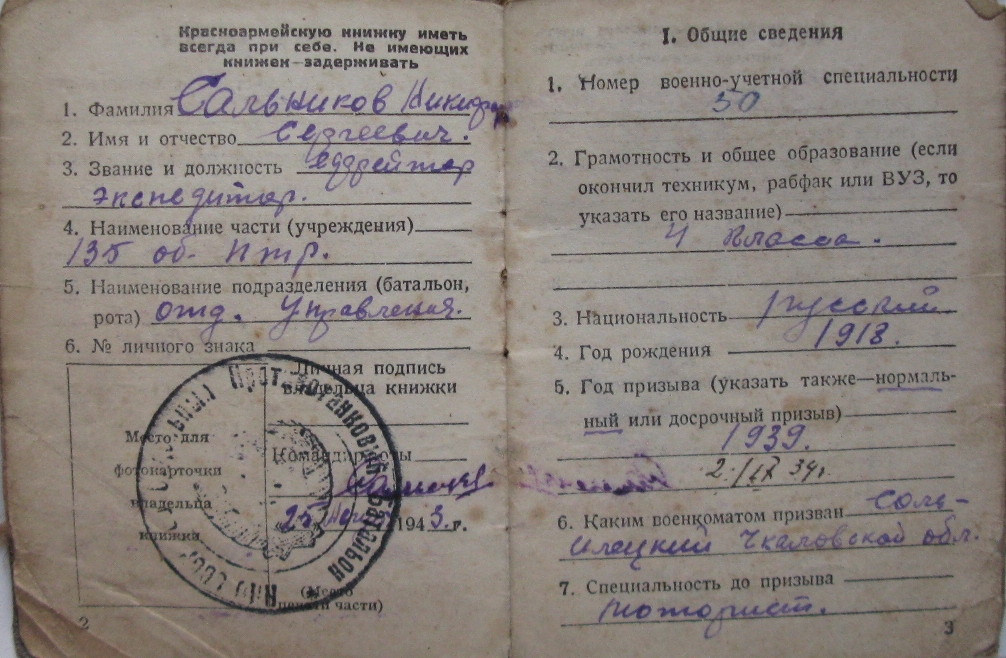 Красноармейскую книжку иметь
всегда при себе. Не имеющих
книжек—задерживать
1. Фамилия Сальников
2. Имя и отчество Сергеевич.
3. Звание и должность ефрейтор
экспедитор.
4. Наименование части (учреждения)
135 об. птр.
5. Наименование подразделения (батальон,
рота) отд. управления.
6. № личного знака
Личная подпись
владельца книжки
Место для
фотокарточки
владельца
книжки
Командир роты
25 1943 г.
(Место
печати части)
Прот. танковый Батальон
НКО СССР
2
I. Общие сведения
1. Номер военно-учетной специальности
50
2. Грамотность и общее образование (если
окончил техникум, рабфак или ВУЗ, то
указать его название)
4 класса.
3. Национальность русский
4. Год рождения 1918.
5. Год призыва (указать также—нормаль-
ный или досрочный призыв)
1939.
6. Каким военкоматом призван Соль-
Илецкий Чкаловской обл.
7. Специальность до призыва
моторист.
3